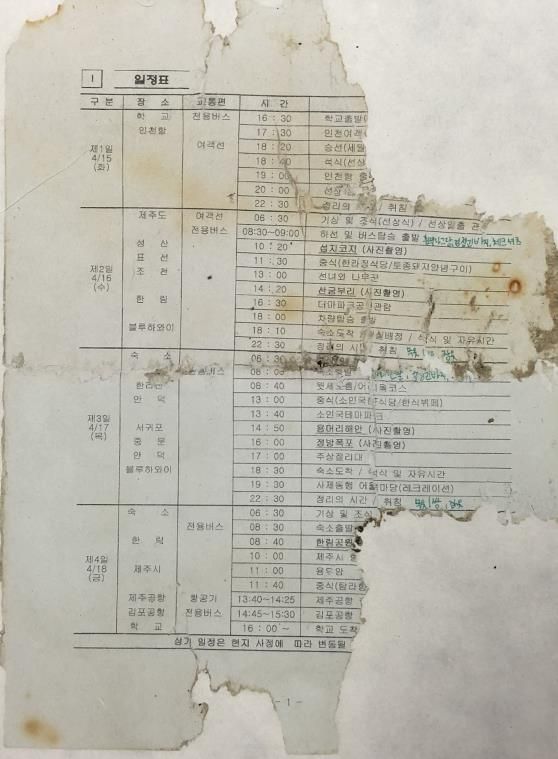 Ⅰ 일정표
구 분 장 소 교통편 시 간
제1일 4/15 (화) 학 교 전용버스 16 : 30 학교출발(
인천항 17 : 30 인천여객
여객선 18 : 20 승선(세월
18 : 40 석식(선상
19 : 00 인천항
20 : 00 선상
22 : 30 정리의 / 취침
제2일 4/16 (수) 제주도 여객선 06 : 30 기상 및 조식(선상식) / 선상일출 관
전용버스 08:30~09:00 하선 및 버스탑승 출발
성 산 10 : 20 섭지코지 (사진촬영)
표 선 11 : 30 중식(한라정식당/토종돼지양념구이)
조 천 13 : 00 선녀와 나무꾼
14 : 20 산굼부리 (사진촬영)
한 림 16 : 30 더마파크공연관람
18 : 00 차량탑승 출발
블루하와이 18 : 10 숙소도착 / 실배정 / 석식 및 자유시간
22 : 30 정리의 시간 / 취침
제3일 4/17 (목) 숙 소 06 : 30
08 : 00 숙소출발
한라산 08 : 40 윗세오름/어리목코스
안 덕 13 : 00 중식(소인국 식당/한식뷔페)
13 : 40 소인국테마파크
서귀포 14 : 50 용머리해안 (사진촬영)
중 문 16 : 00 정방폭포 (사진촬영)
안 덕 17 : 00 주상절리대
블루하와이 18 : 30 숙소도착 / 석식 및 자유시간
19 : 30 사제동행 어울 마당(레크레이션)
22 : 30 정리의 시간 / 취침
제4일 4/18 (금) 숙 소 06 : 30 기상 및 조식
전용버스 08 : 30 숙소출발
한 림 08 : 40 한림공원
제주시 10 : 00 제주시
11 : 00 용두암
11 : 40 중식(탐라
제주공항 항공기 13:40~14:25 제주공항
김포공항 전용버스 14:45~15:30 김포공항
학 교 16 : 00 ~ 학교 도착
상기 일정은 현지 사정에 따라 변동될
- 1 -